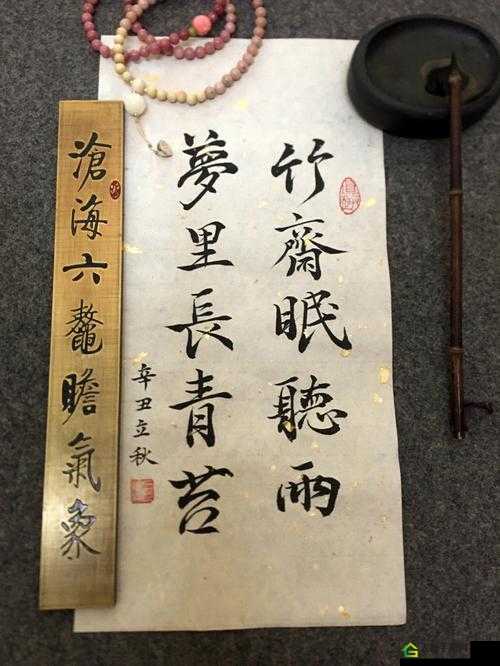 竹齋眠聽雨
夢里長青苔
辛丑立秋
滄海六鼇瞻氣象